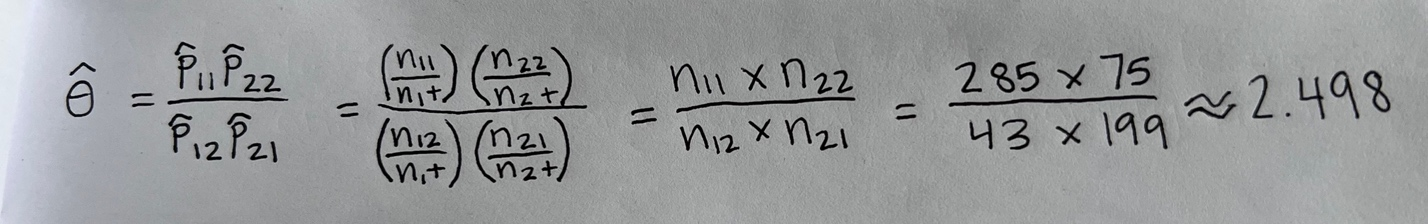 θ̂ = (p̂₁₁p̂₂₂)/(p̂₁₂p̂₂₁) = ((n₁₁/n₁₊)(n₂₂/n₂₊))/((n₁₂/n₁₊)(n₂₁/n₂₊)) = (n₁₁ × n₂₂)/(n₁₂ × n₂₁) = (285 × 75)/(43 × 199) ≈ 2.498